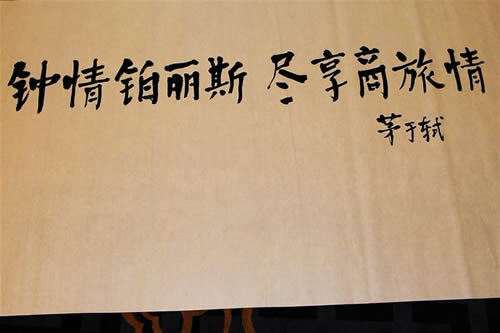 钟情铂丽斯 尽享商旅情
茅于轼